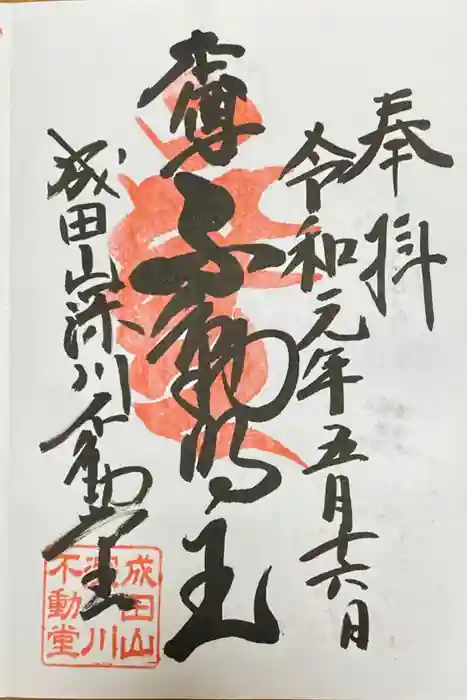 奉拝
令和元年五月十六日
本尊不動明王
成田山深川不動堂
成田山
深川
不動堂